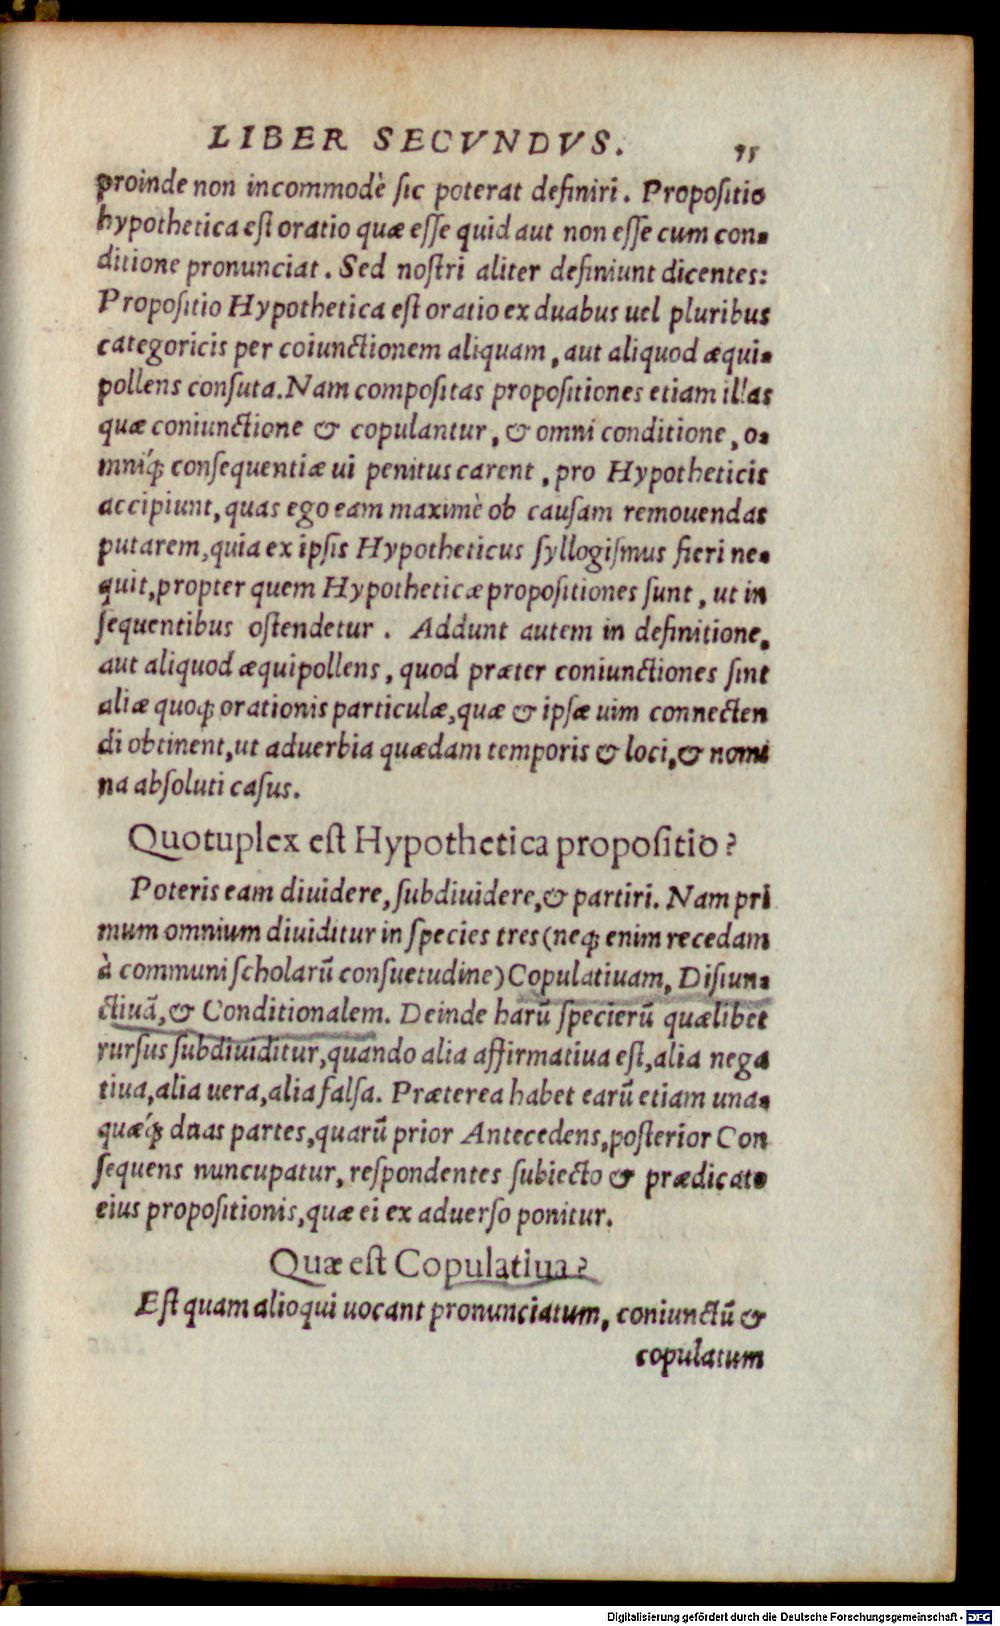 LIBER SECVNDVS. 75
proinde non incommodè sic poterat definiri. Propositio
hypothetica est oratio quæ esse quid aut non esse cum con-
ditione pronunciat. Sed nostri aliter definiunt dicentes:
Propositio Hypothetica est oratio ex duabus uel pluribus
categoricis per coiunctionem aliquam, aut aliquod æqui-
pollens consuta. Nam compositas propositiones etiam illas
quæ coniunctione & copulantur, & omni conditione, o-
mniq́; consequentiæ ui penitus carent, pro Hypotheticis
accipiunt, quas ego eam maximè ob causam remouendas
putarem, quia ex ipsis Hypotheticus syllogismus fieri ne-
quit, propter quem Hypotheticæ propositiones sunt, ut in
sequentibus ostendetur. Addunt autem in definitione,
aut aliquod æquipollens, quod præter coniunctiones sint
aliæ quoq; orationis particulæ, quæ & ipsæ uim connecten
di obtinent, ut aduerbia quædam temporis & loci, & nomi
na absoluti casus.
Quotuplex est Hypothetica propositio?
Poteris eam diuidere, subdiuidere, & partiri. Nam pri
mum omnium diuiditur in species tres (neq; enim recedam
à communi scholarū consuetudine) Copulatiuam, Disiun-
ctiuā, & Conditionalem. Deinde harū specierū quælibet
rursus subdiuiditur, quando alia affirmatiua est, alia nega
tiua, alia uera, alia falsa. Præterea habet earū etiam una-
quæq́; duas partes, quarū prior Antecedens, posterior Con
sequens nuncupatur, respondentes subiecto & prædicato
eius propositionis, quæ ei ex aduerso ponitur.
Quæ est Copulatiua?
Est quam alioqui uocant pronunciatum, coniunctū &
copulatum
Digitalisierung gefördert durch die Deutsche Forschungsgemeinschaft - DFG